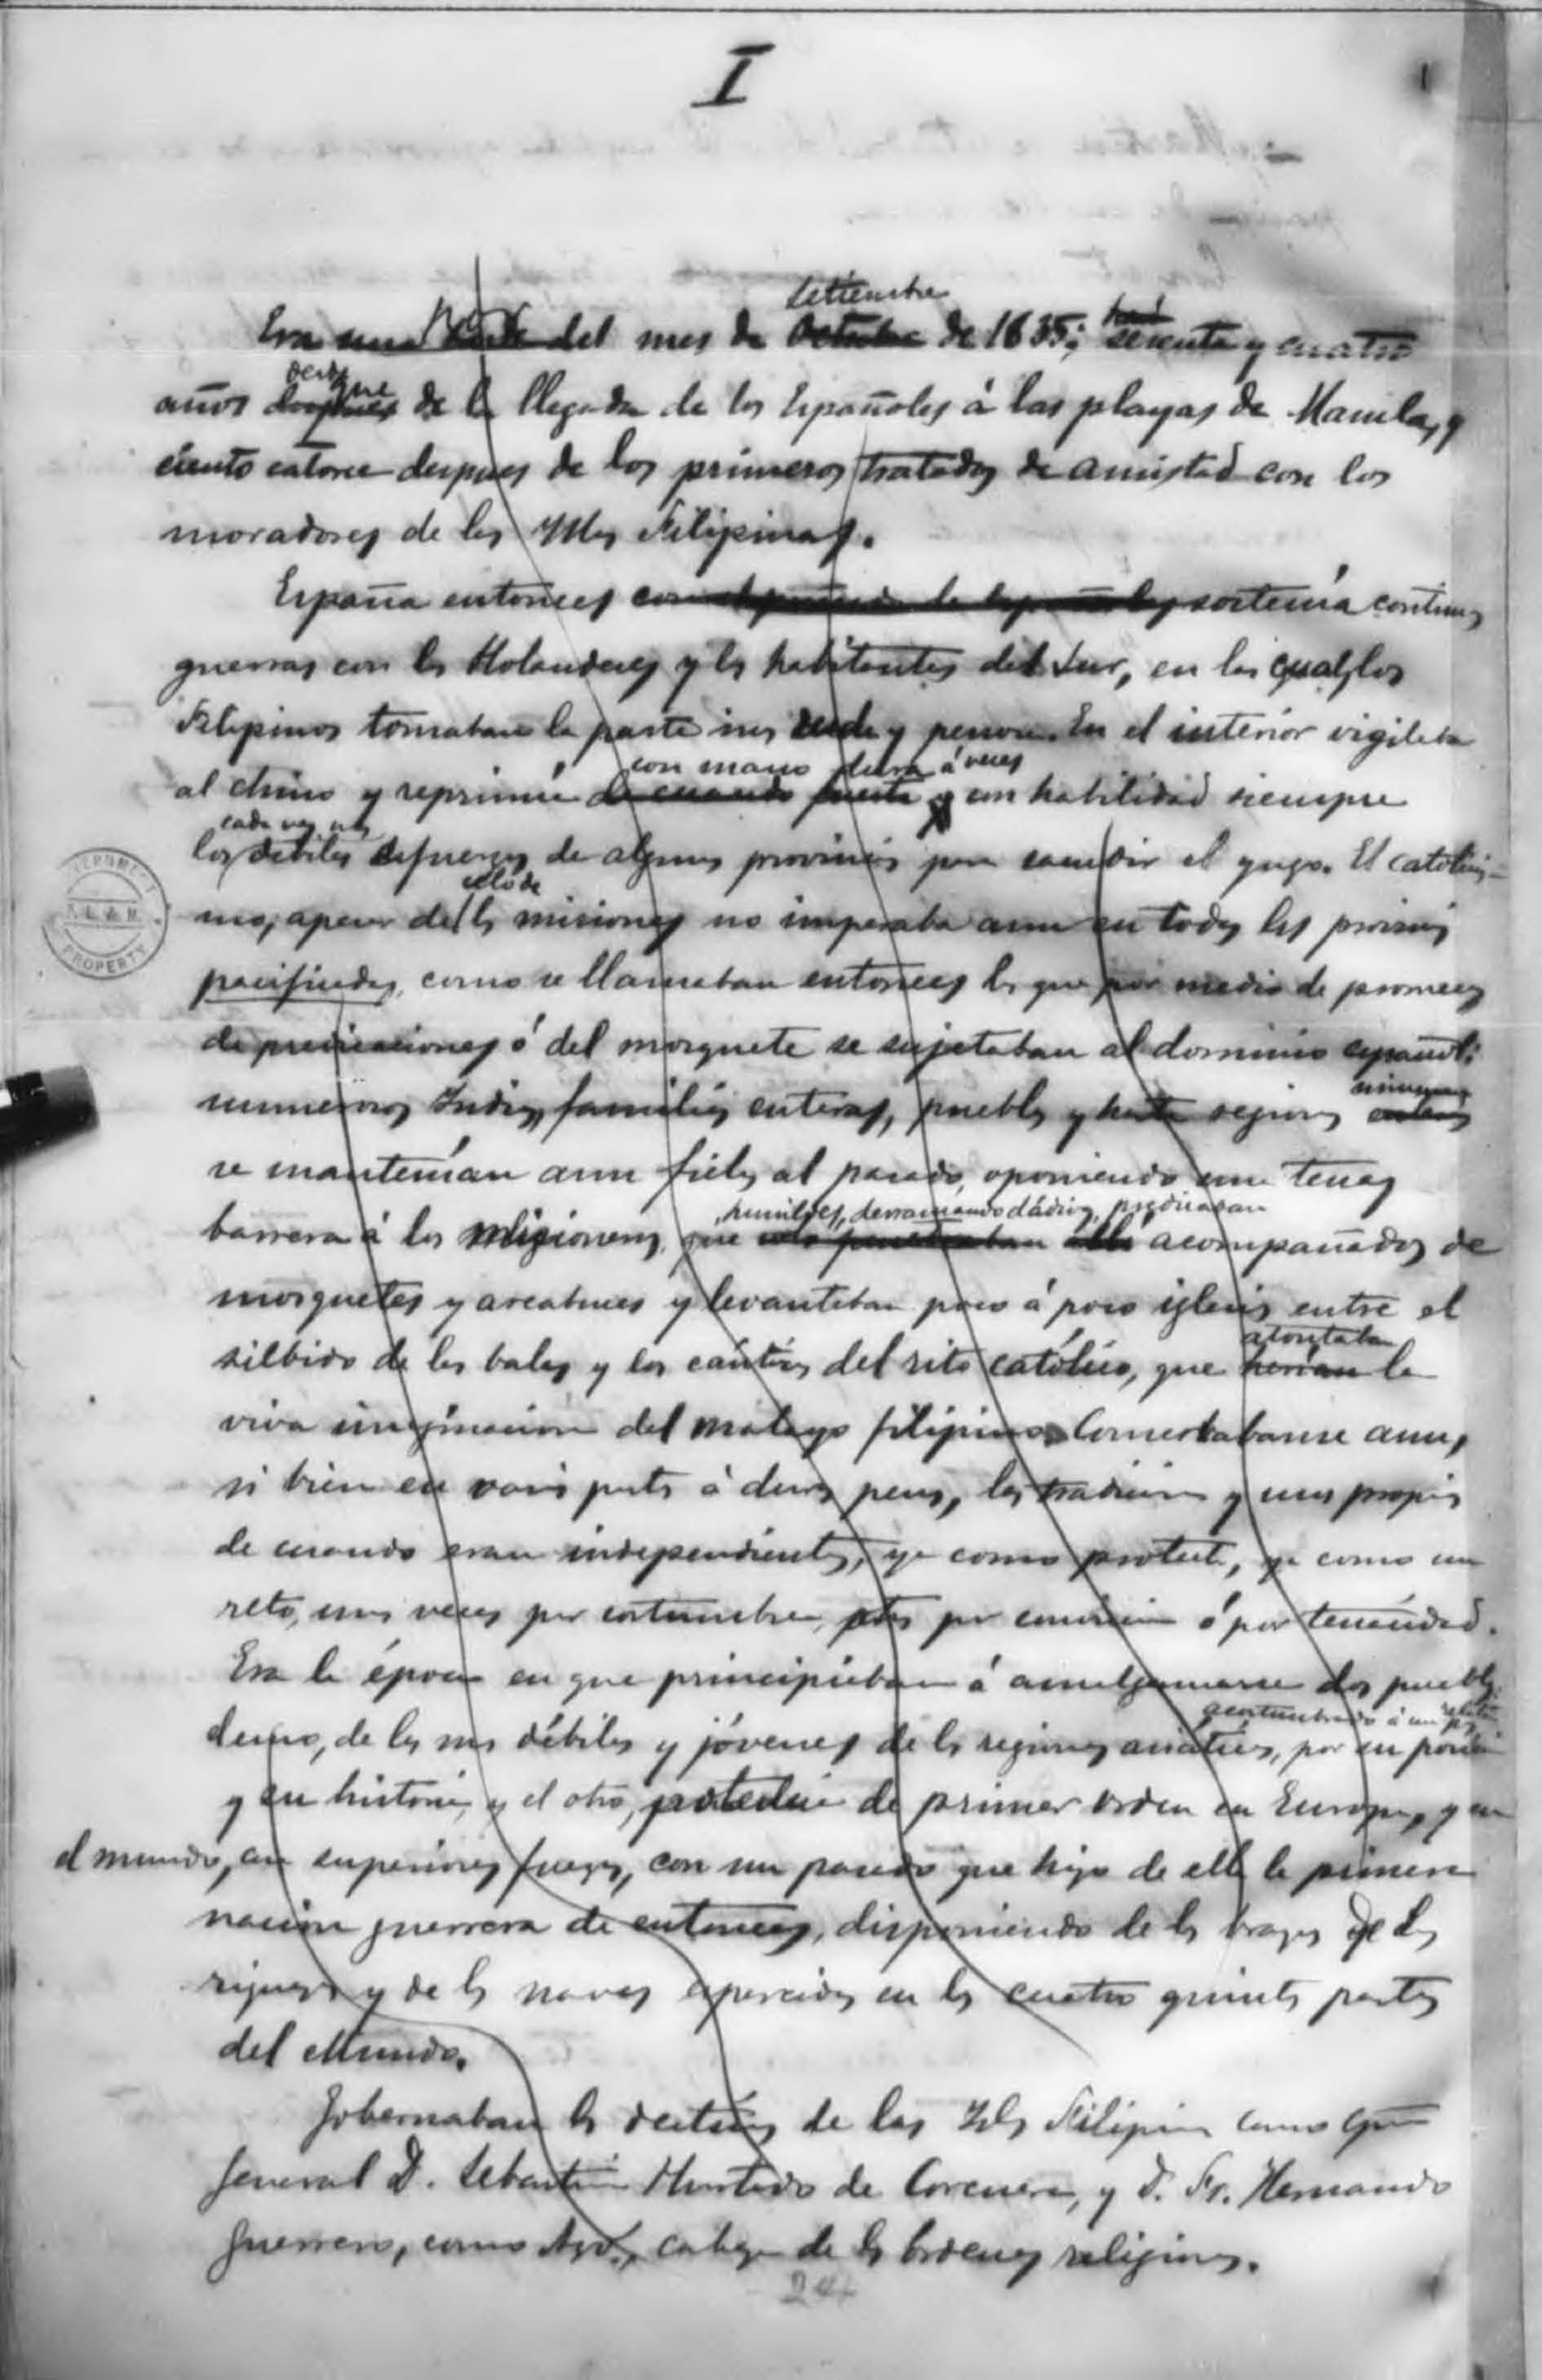 I
1
Setiembre
del mes de Octubre de 1635; sesenta y cuatro
años despues de la llegada de los Españoles á las playas de Manila, y
ciento catorce despues de los primeros tratados de amistad con los
moradores de las Yslas Filipinas.
España entonces sostenía continuas
guerras con los Holandeses y los habitantes del Sur, en las cuales los
Filipinos tomaban la parte mas ruda y penosa. En el interior vigilaba
con mano dura á veces
al chino y reprimía de cuando y con habilidad siempre
cada vez mas
los débiles esfuerzos de algunas provincias para sacudir el yugo. El catolicis-
celo de
mo, apesar del las misiones no imperaba aun en todas las provincias
pacificadas, como se llamaban entonces las que por medio de promesas
de predicaciones ó del mosquete se sujetaban al dominio español:
numerosos Indios, familias enteras, pueblos y hasta regiones
se mantenían aun fieles al pasado, oponiendo una tenaz
humildes, derramando dádivas, predicaban
barrera á los misioneros, que acompañados de
mosquetes y arcabuces y levantaban poco á poco iglesias entre el
atontaba
silbido de las balas y los cánticos del rito católico, que herian la
viva imaginacion del malayo filipino. Conservabanse aun,
si bien en varias partes á duras penas, las tradiciones y usos propios
de cuando eran independientes, ya como protesta, ya como un
reto, unas veces por costumbre, otras por conviccion ó por tenacidad.
Era la época en que principiaban á amalgamarse dos pueblos
acostumbrado á un
el uno, de los mas débiles y jóvenes de las regiones asiáticas, por su
y su historia, y el otro, potencia de primer orden en Europa, y en
el mundo, con superiores fuerzas, con un pasado que hizo de ella la primera
nacion guerrera de entonces, disponiendo de los brazos de las
riquezas y de las naves esparcidas en las cuatro quintas partes
del Mundo.
Gobernaban los destinos de las Yslas Filipinas como Gran
General D. Sebastian Hurtado de Corcuera, y D. Fr. Hernando
Guerrero, como Arz., cabeza de las órdenes religiosas.
24
PROPERTY